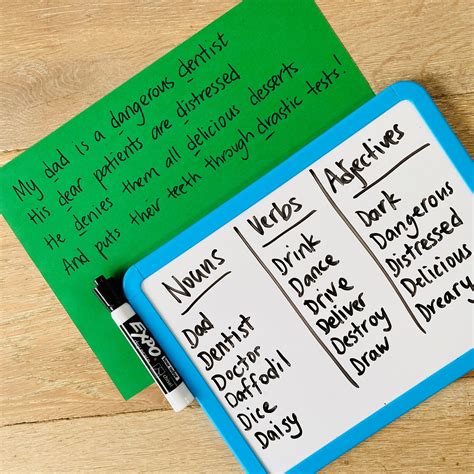 My dad is a dangerous dentist
His dear patients are distressed
He denies them all delicious desserts
And puts their teeth through drastic tests!
Nouns
Dad
Dentist
Doctor
Daffodil
Dice
Daisy
Verbs
Drink
Dance
Drive
Deliver
Destroy
Draw
Adjectives
Dark
Dangerous
Distressed
Delicious
Dreary
EXPO